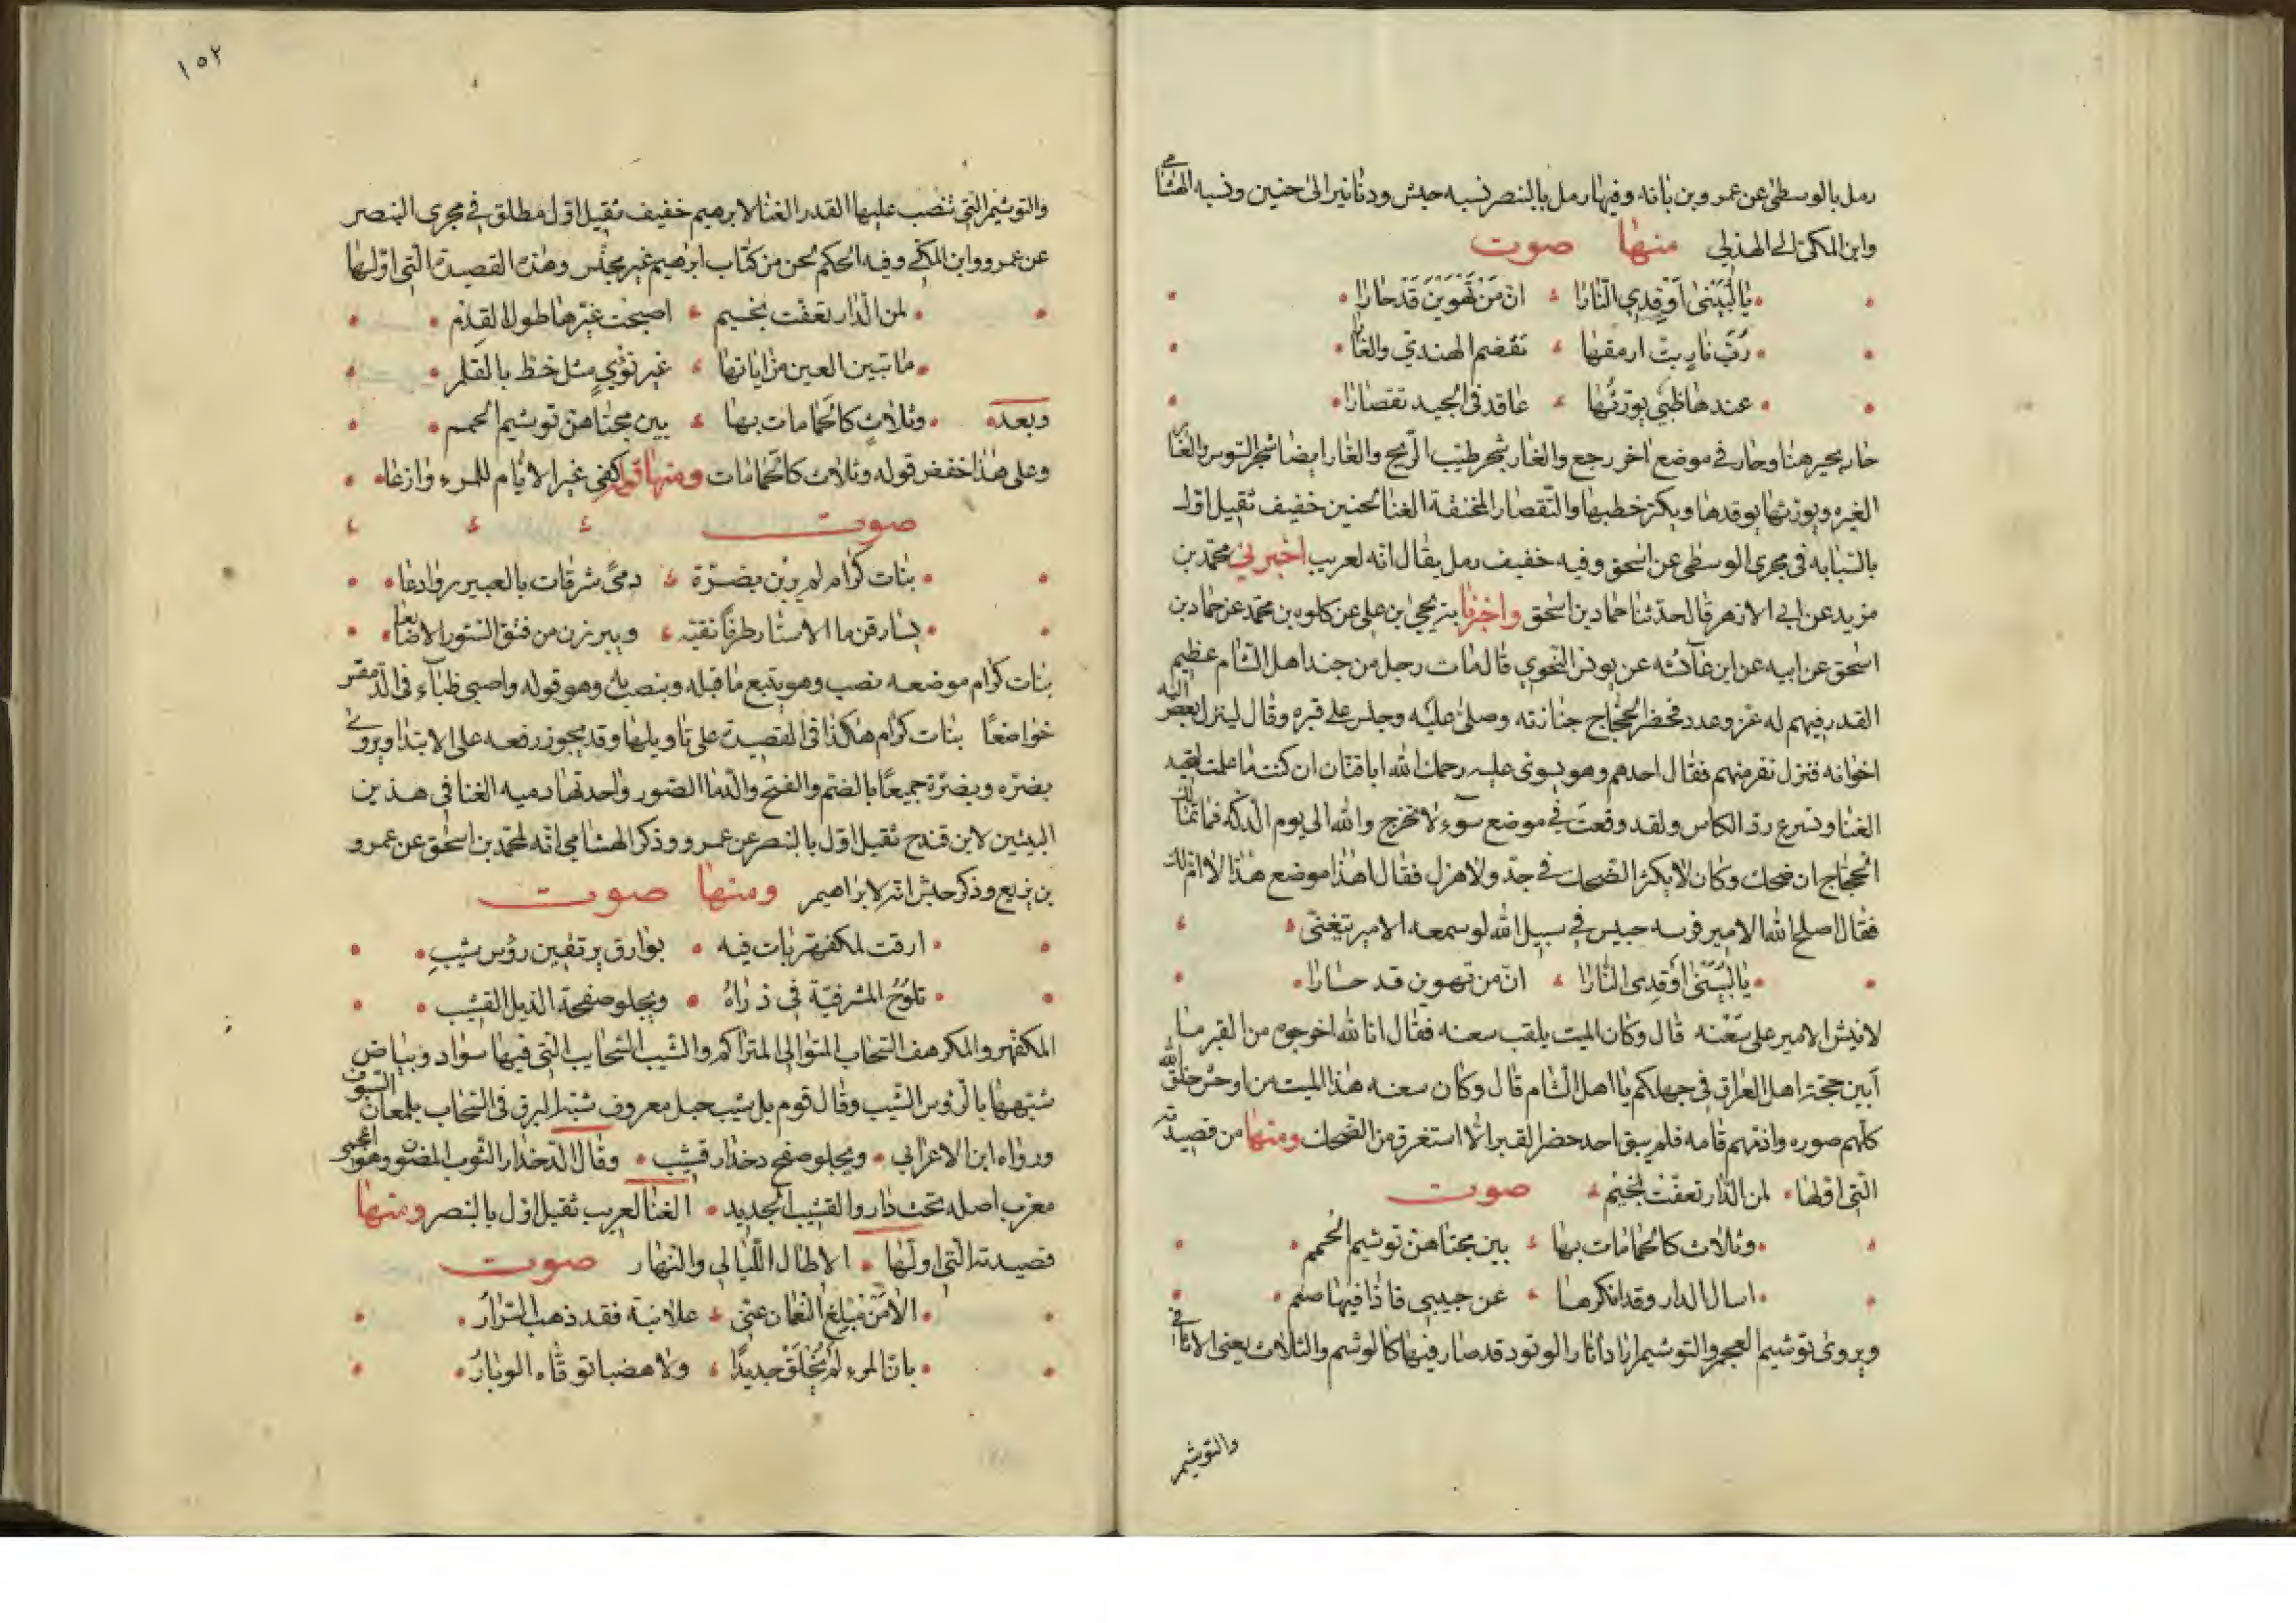 رمل بالوسطى عن عمرو بن بانه وفيها رمل بالبنصر نسبه حبش ودنانير الى حنين ونسبه الهشامي
وابن المكى الى الهذلي منها صوت
يا لبينى اوقدي النارا ان من تهوين قد حارا
رب نار بت ارمقها تقضم الهندي والغارا
عندها ظبي يورثها عاقد في الجيد تقصارا
حار يحير هنا وحار في موضع اخر رجع والغار شجر طيب الريح والغار ايضا شجر السوس والغار
الغيره ويورثها يوقدها ويكثر حطبها والتقصار المخنقة الغنا لحنين خفيف ثقيل اول
بالسبابه في مجرى الوسطى عن اسحق وفيه خفيف رمل يقال انه لعريب اخبرني محمد بن
مزيد عن ابي الازهر قال حدثنا حماد بن اسحق واخبرنا به يحيى بن علي عن كلوه بن محمد عن حماد بن
اسحق عن ابيه عن ابن عائشه عن يونس النحوي قال مات رجل من جند اهل الشام عظيم
القدر فيهم له عز وعدد فحضر الحجاج جنازته وصلى عليه وجلس على قبره وقال لينزل اليه بعض
اخوانه فنزل نفر منهم فقال احدهم وهو يسوى عليه رحمك الله ابا قنان ان كنت ما علمت لتجيد
الغنا وتسرع رد الكاس ولقد وقعت في موضع سوء لا تخرج والله الى يوم الدكه فما تمالك
الحجاج ان ضحك وكان لا يكثر الضحك في جد ولا هزل فقال اهذا موضع هذا لا ام لك
فقال اصلح الله الامير فرسه حبيس في سبيل الله لو سمعه الامير يتغنى
يا لبينى اوقدى النارا ان من تهوين قد حارا
لانتشر الامير على سعنه قال وكان الميت يلقب سعنه فقال انا لله اخرجوه من القبر ما
أبين حجة اهل العراق في جهلكم يا اهل الشام قال وكان سعنه هذا الميت من اوحش خلق الله
كلهم صوره واذمهم قامه فلم يبق احد حضر القبر الا استغرق من الضحك ومنها من قصيدته
التي اولها لمن الدار تعفت بخيم صوت
وثلاث كالحمامات بها بين مجثاهن توشيم الحمم
اسال الدار وقد انكرها عن حبيبي فاذا فيها صمم
ويروى توشيم العجم والتوشيم اراد اثار الوقود قد صار فيها كالوشم والثلاث يعنى الاثافي
والتوشيم
١٥٢
والتوشيم التي تنصب عليها القدر الغنا لابرهيم خفيف ثقيل اول مطلق في مجرى البنصر
عن عمرو وابن المكي وفيه الحكم لحن من كتاب ابرهيم غير مجنس وهذه القصيدة التي اولها
لمن الدار تعفت بخيم اصبحت غيرها طول القدم
ما تبين العين من اياتها غير نؤي مثل خط بالقلم
وبعده وثلاث كالحمامات بها بين مجثاهن توشيم الحمم
وعلى هذا خفض قوله وثلاث كالحمامات ومنها قوله كفى غير الايام للمرء وازعا
صوت
بنات كرام لم يربن بضرة دمى شرقات بالعبير روادعا
يسارقن ما الاستار طرفا نقيه ويبرزن من فتق الستور الاصابعا
بنات كرام موضعه نصب وهو يتبع ما قبله وينصب به وهو قوله واصبى ظباء في الدمقس
خواضعا بنات كرام هكذا في القصيدة على تاويلها وقد يجوز رفعه على الابتدا ويروى
بضره وبضرة جميعا بالضم والفتح والدما الصور واحدتها دميه الغنا في هذين
البيتين لابن قندح ثقيل اول بالبنصر عن عمرو وذكر الهشامي انه لمحمد بن اسحق عن عمرو
بن بزيع وذكر حبش انه لابراهيم ومنها صوت
ارقت لمكفهر بات فيه بوارق يرتقين رؤس شيب
تلوح المشرفية في ذراه ويجلو صفحة الذيل القشيب
المكفهر والمكرهف السحاب المتوالي المتراكم والشيب السحايب التي فيها سواد وبياض
شبهها بالرؤس الشيب وقال قوم بل شيب جبل معروف شبه البرق في السحاب بلمعان السيوف
ورواه ابن الاعرابي ويجلو صفح دخدار قشيب وقال الدخدار الثوب المصون وهو اعجمي
معرب اصله تخت دار والقشيب الجديد الغنا لعريب ثقيل اول بالبنصر ومنها
قصيدته التي اولها الا طال الليالي والنهار صوت
الا من مبلغ النعمان عني علانية فقد ذهب السرار
بان المرء لم يخلق جديدا ولا هضبا توقاه الوبار